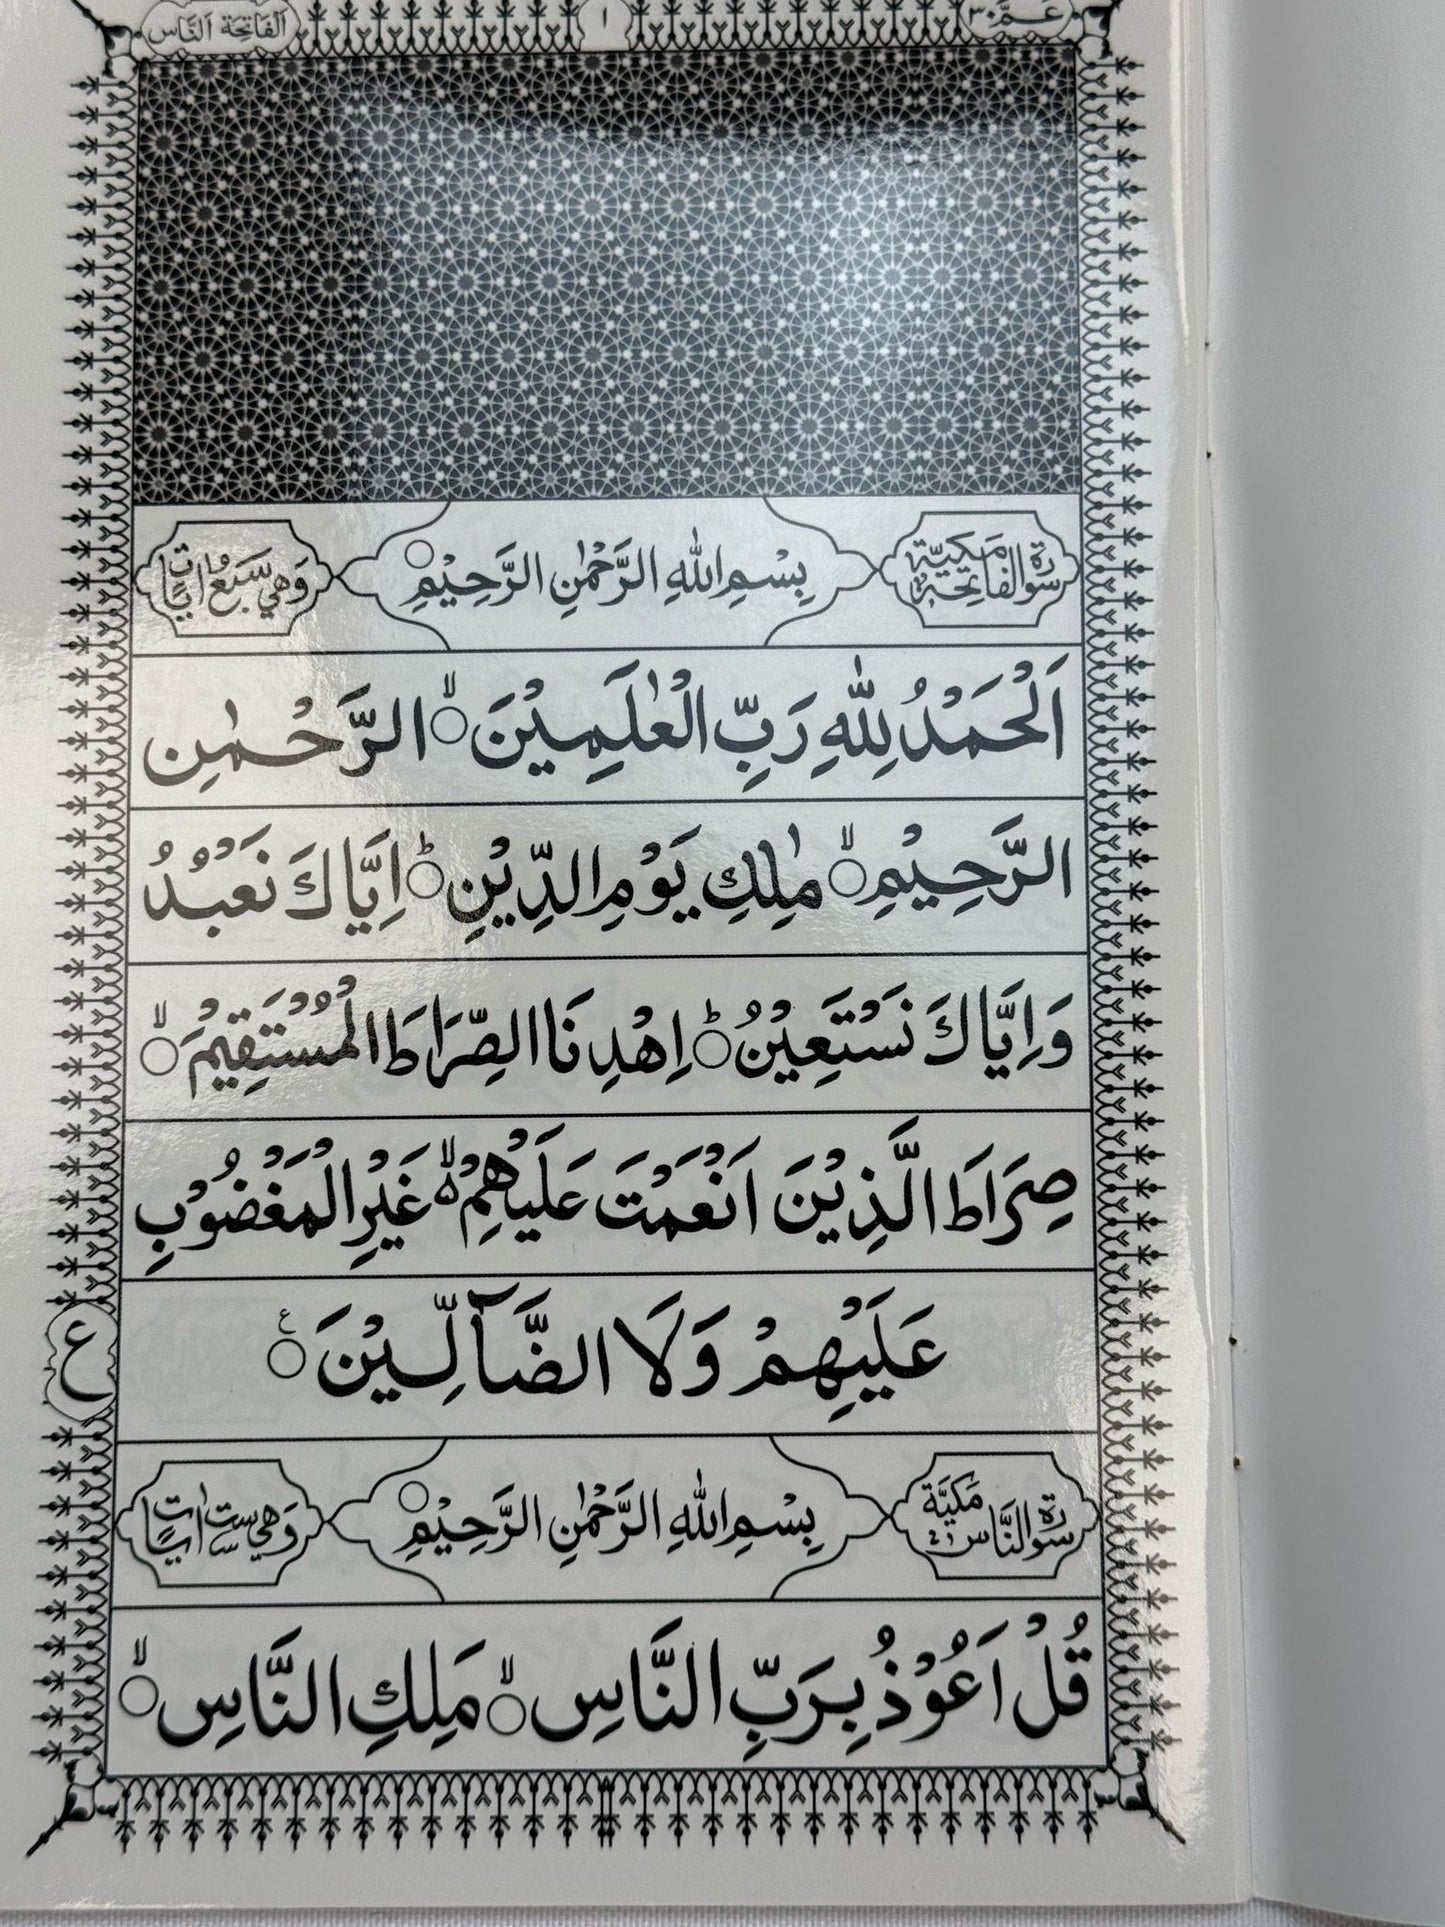 عَمَّ ٣٠
١
اَلْفَاتِحَة النَّاس
سُوْرَةُ الْفَاتِحَةِ مَكِّيَّةٌ
بِسْمِ اللهِ الرَّحْمٰنِ الرَّحِيْمِ ○
وَهِيَ سَبْعُ اٰيَاتٍ
اَلْحَمْدُ لِلّٰهِ رَبِّ الْعٰلَمِيْنَ ۙ○ الرَّحْمٰنِ
الرَّحِيْمِ ۙ○ مٰلِكِ يَوْمِ الدِّيْنِ ؕ○ اِيَّاكَ نَعْبُدُ
وَاِيَّاكَ نَسْتَعِيْنُ ؕ○ اِهْدِنَا الصِّرَاطَ الْمُسْتَقِيْمَ ۙ○
صِرَاطَ الَّذِيْنَ اَنْعَمْتَ عَلَيْهِمْ ۙ۬ۙ غَيْرِ الْمَغْضُوْبِ
عَلَيْهِمْ وَلَا الضَّآلِّيْنَ ○ع
ع
سُوْرَةُ النَّاسِ مَكِّيَّةٌ
بِسْمِ اللهِ الرَّحْمٰنِ الرَّحِيْمِ ○
وَهِيَ سِتُّ اٰيَاتٍ
قُلْ اَعُوْذُ بِرَبِّ النَّاسِ ۙ○ مَلِكِ النَّاسِ ۙ○